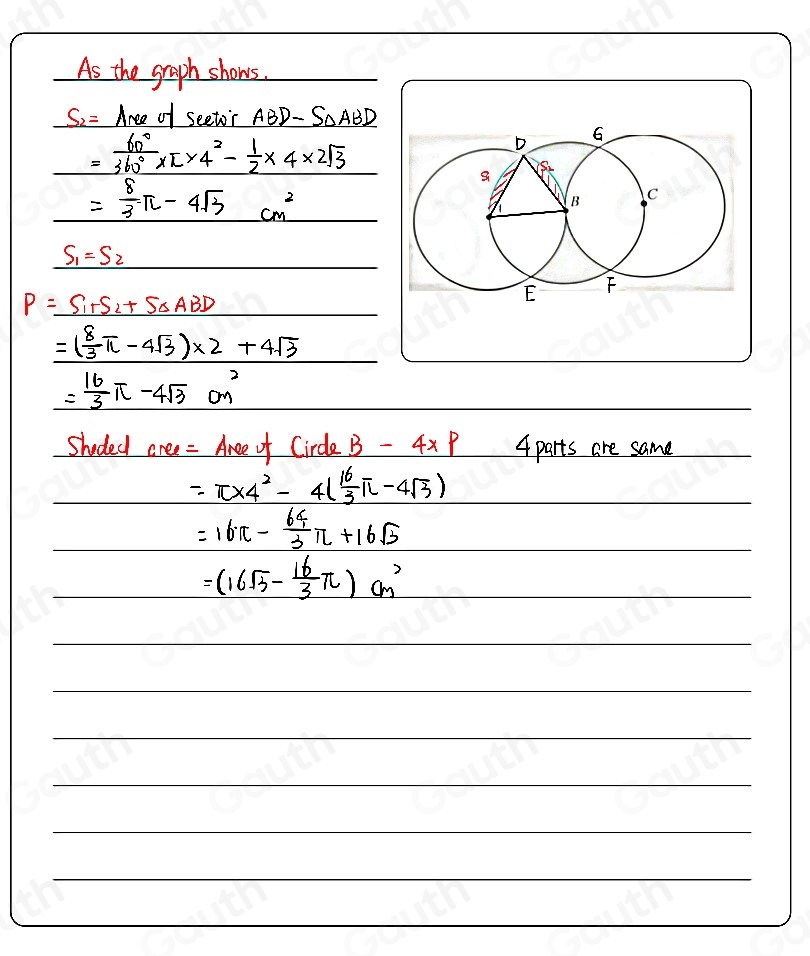 As the graph shows.
S₂ = Area of Seetoir ABD - S△ABD
= 60°/360° × π × 4² - 1/2 × 4 × 2√3
= 8/3 π - 4√3 cm²
S₁ = S₂
P = S₁+S₂+ S△ABD
= (8/3 π - 4√3) × 2 + 4√3
= 16/3 π - 4√3 cm²
D G
S₁ S₂
B C
E F
Shaded area = Area of Circle B - 4×P 4 parts are same
= π×4² - 4(16/3 π - 4√3)
= 16π - 64/3 π + 16√3
= (16√3 - 16/3 π) cm²
Gauth